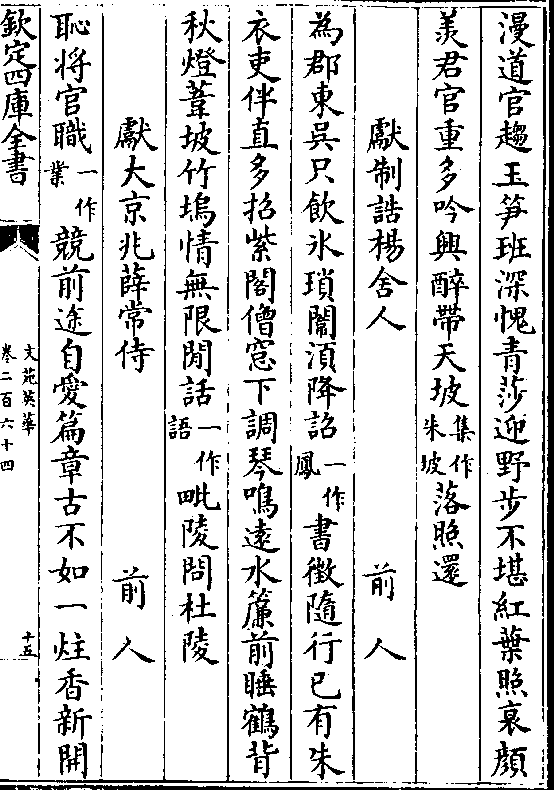 漫道官趨玉笋班深愧青莎迎野步不堪紅葉照衰顔
羡君官重多吟興醉帶天坡集作朱坡落照還
獻制誥楊舍人 前人
為郡東吳只飲氷瑣闈湏降詔一作鳳書徴隨行已有朱
衣吏伴直多招紫閣僧窓下調琴鳴逺水簾前睡鶴背
秋燈葦坡竹塢情無限閒話一作語毗陵問杜陵
獻大京兆薛常侍 前人
恥將官職一作業競前途自愛篇章古不如一炷香新開
欽定四庫全書
文苑英華
卷二百六十四
十五